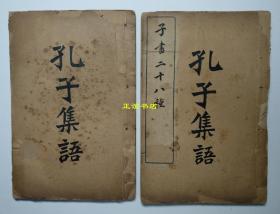 孔子集語
子書二十八種
孔子集語
正道书店